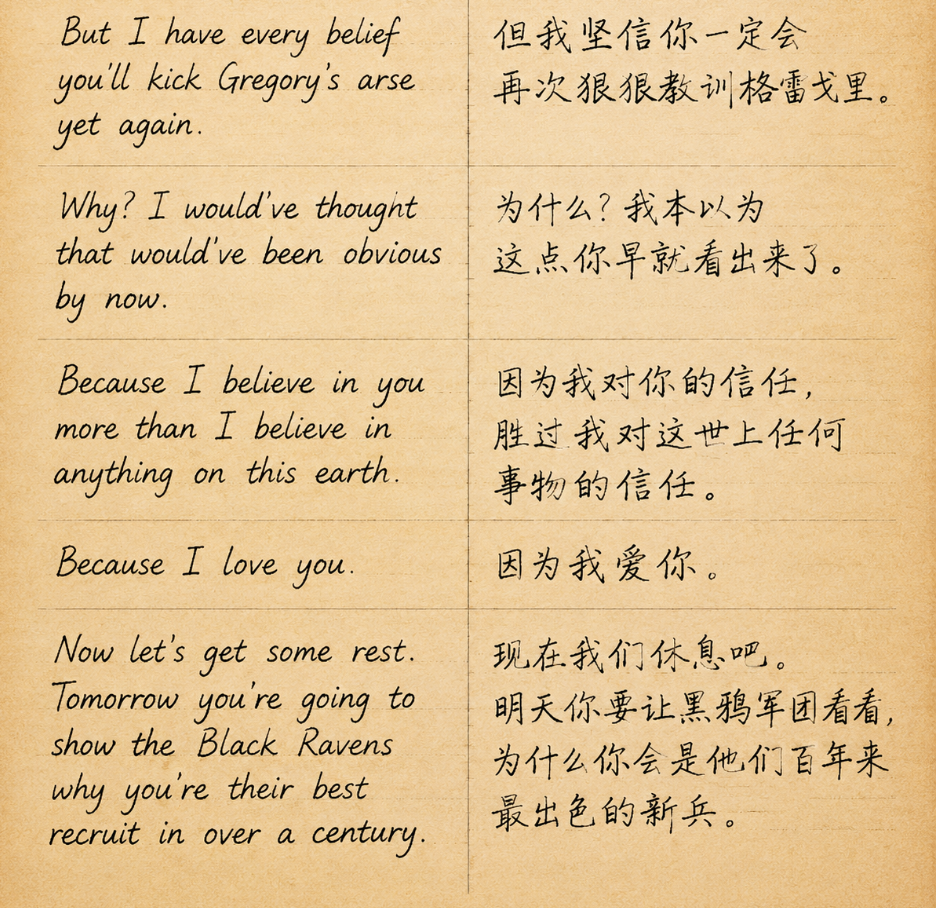 But I have every belief
you'll kick Gregory's arse
yet again.
但我坚信你一定会
再次狠狠教训格雷戈里。
Why? I would've thought
that would've been obvious
by now.
为什么？我本以为
这点你早就看出来了。
Because I believe in you
more than I believe in
anything on this earth.
因为我对你的信任，
胜过我对这世上任何
事物的信任。
Because I love you.
因为我爱你。
Now let's get some rest.
Tomorrow you're going to
show the Black Ravens
why you're their best
recruit in over a century.
现在我们休息吧。
明天你要让黑鸦军团看看，
为什么你会是他们百年来
最出色的新兵。